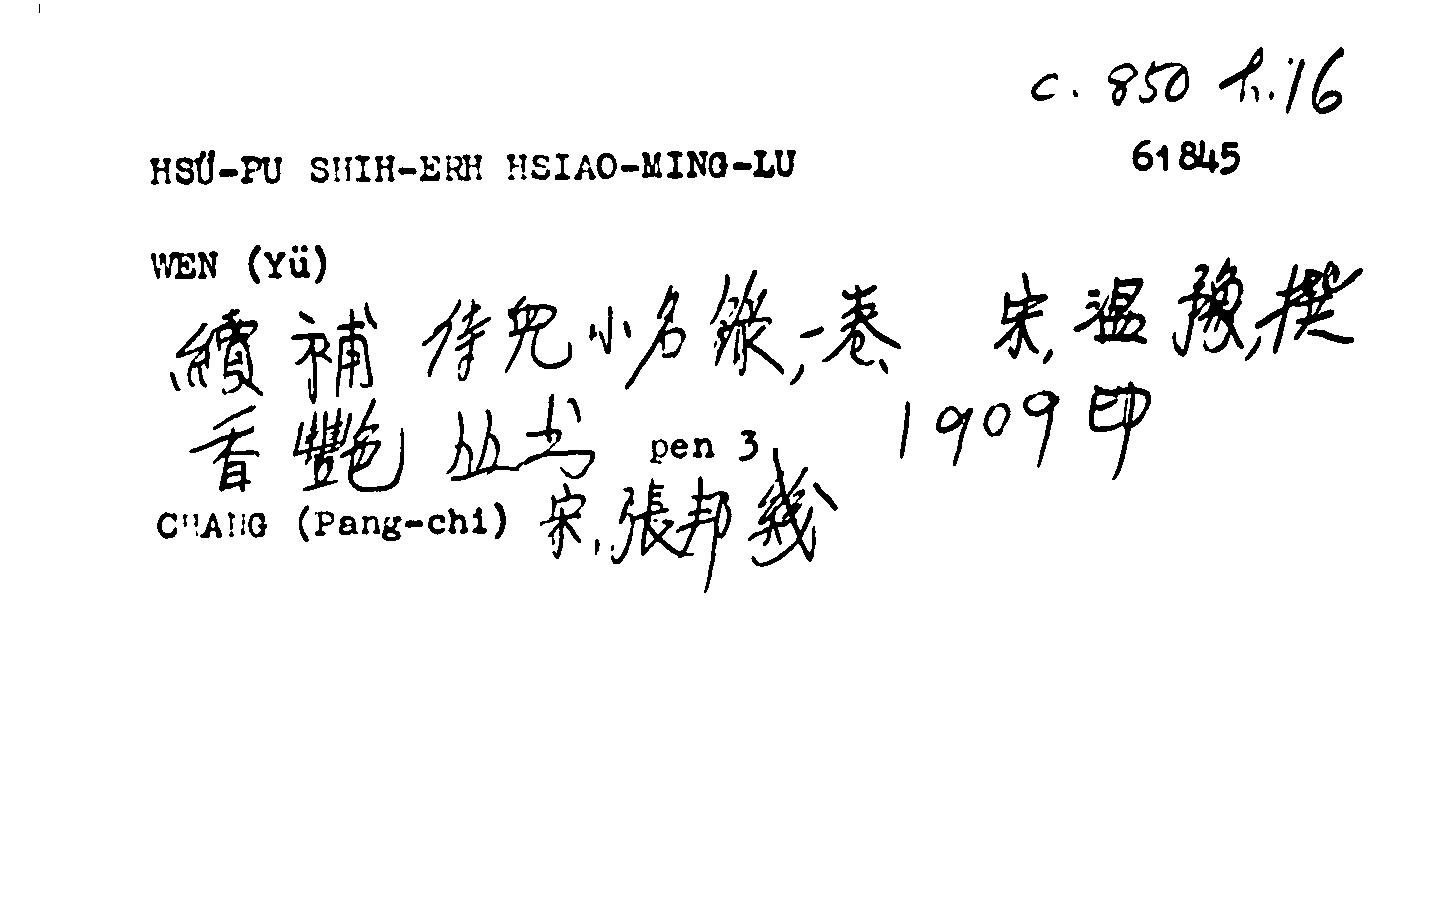 c. 850 h.16
HSÜ-PU SHIH-ERH HSIAO-MING-LU 61845
WEN (Yü)
續補侍兒小名錄,一卷、 宋,溫豫,撰
香豔丛书 pen 3 1909印
CHANG (Pang-chi) 宋,張邦幾